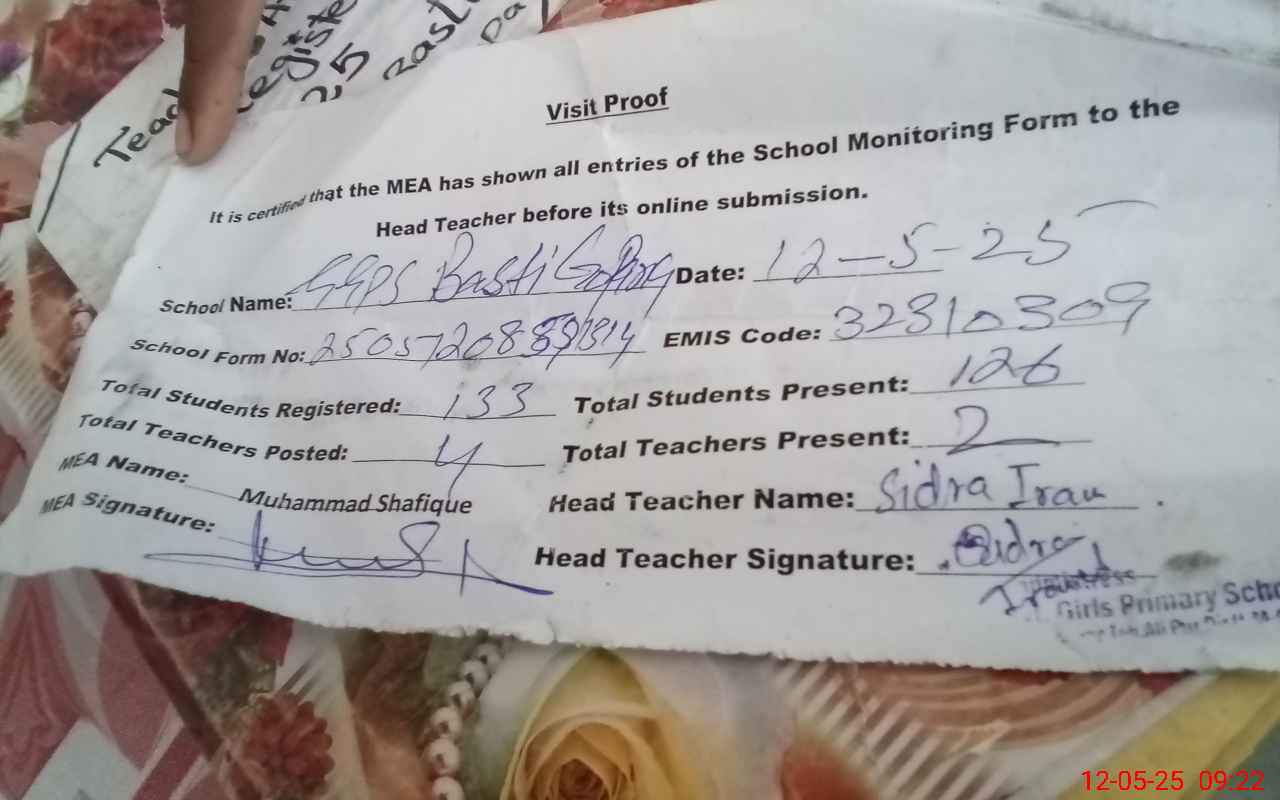 Teach
Registe
25
Basti
Visit Proof
It is certified that the MEA has shown all entries of the School Monitoring Form to the
Head Teacher before its online submission.
School Name: GGPS Basti Date: 12-5-25
School Form No: EMIS Code: 32310309
Total Students Registered: 133 Total Students Present: 126
Total Teachers Posted: 4 Total Teachers Present: 2
MEA Name: Muhammad Shafique Head Teacher Name: Sidra Iram
MEA Signature: Head Teacher Signature: Sidra
Girls Primary Scho
12-05-25 09:22